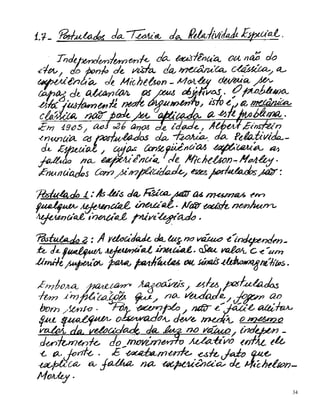 1.7- Postulados da Teoria da Relatividade Especial.
Independentemente da existência ou não do
éter, do ponto de vista da mecânica clássica, a
experiência de Michelson-Morley deveria ser
capaz de alcançar os seus objetivos. O problema
está justamente neste argumento, isto é, a mecânica
clássica não pode ser aplicada a este problema.
Em 1905, aos 26 anos de idade, Albert Einstein
enuncia os postulados da Teoria da Relativida-
de Especial, cujas consequências explicaria as
falhas na experiência de Michelson-Morley.
Enunciados com simplicidade, esses postulados são:
Postulado 1: As leis da Física são as mesmas em
qualquer referencial inercial. Não existe nenhum
referencial inercial privilegiado.
Postulado 2: A velocidade da luz no vácuo é independen-
te de qualquer referencial inercial. Seu valor c é um
limite superior para partículas ou sinais eletromagnéticos.
Embora pareçam razoáveis, estes postulados
tem implicações que, na verdade, fogem ao
bom senso. Por exemplo, não é fácil aceitar
que qualquer observador deve medir o mesmo
valor da velocidade da luz no vácuo, indepen-
dentemente do movimento relativo entre ele
e a fonte. E exatamente este fato que
explica a falha na experiência de Michelson-
Morley.
34